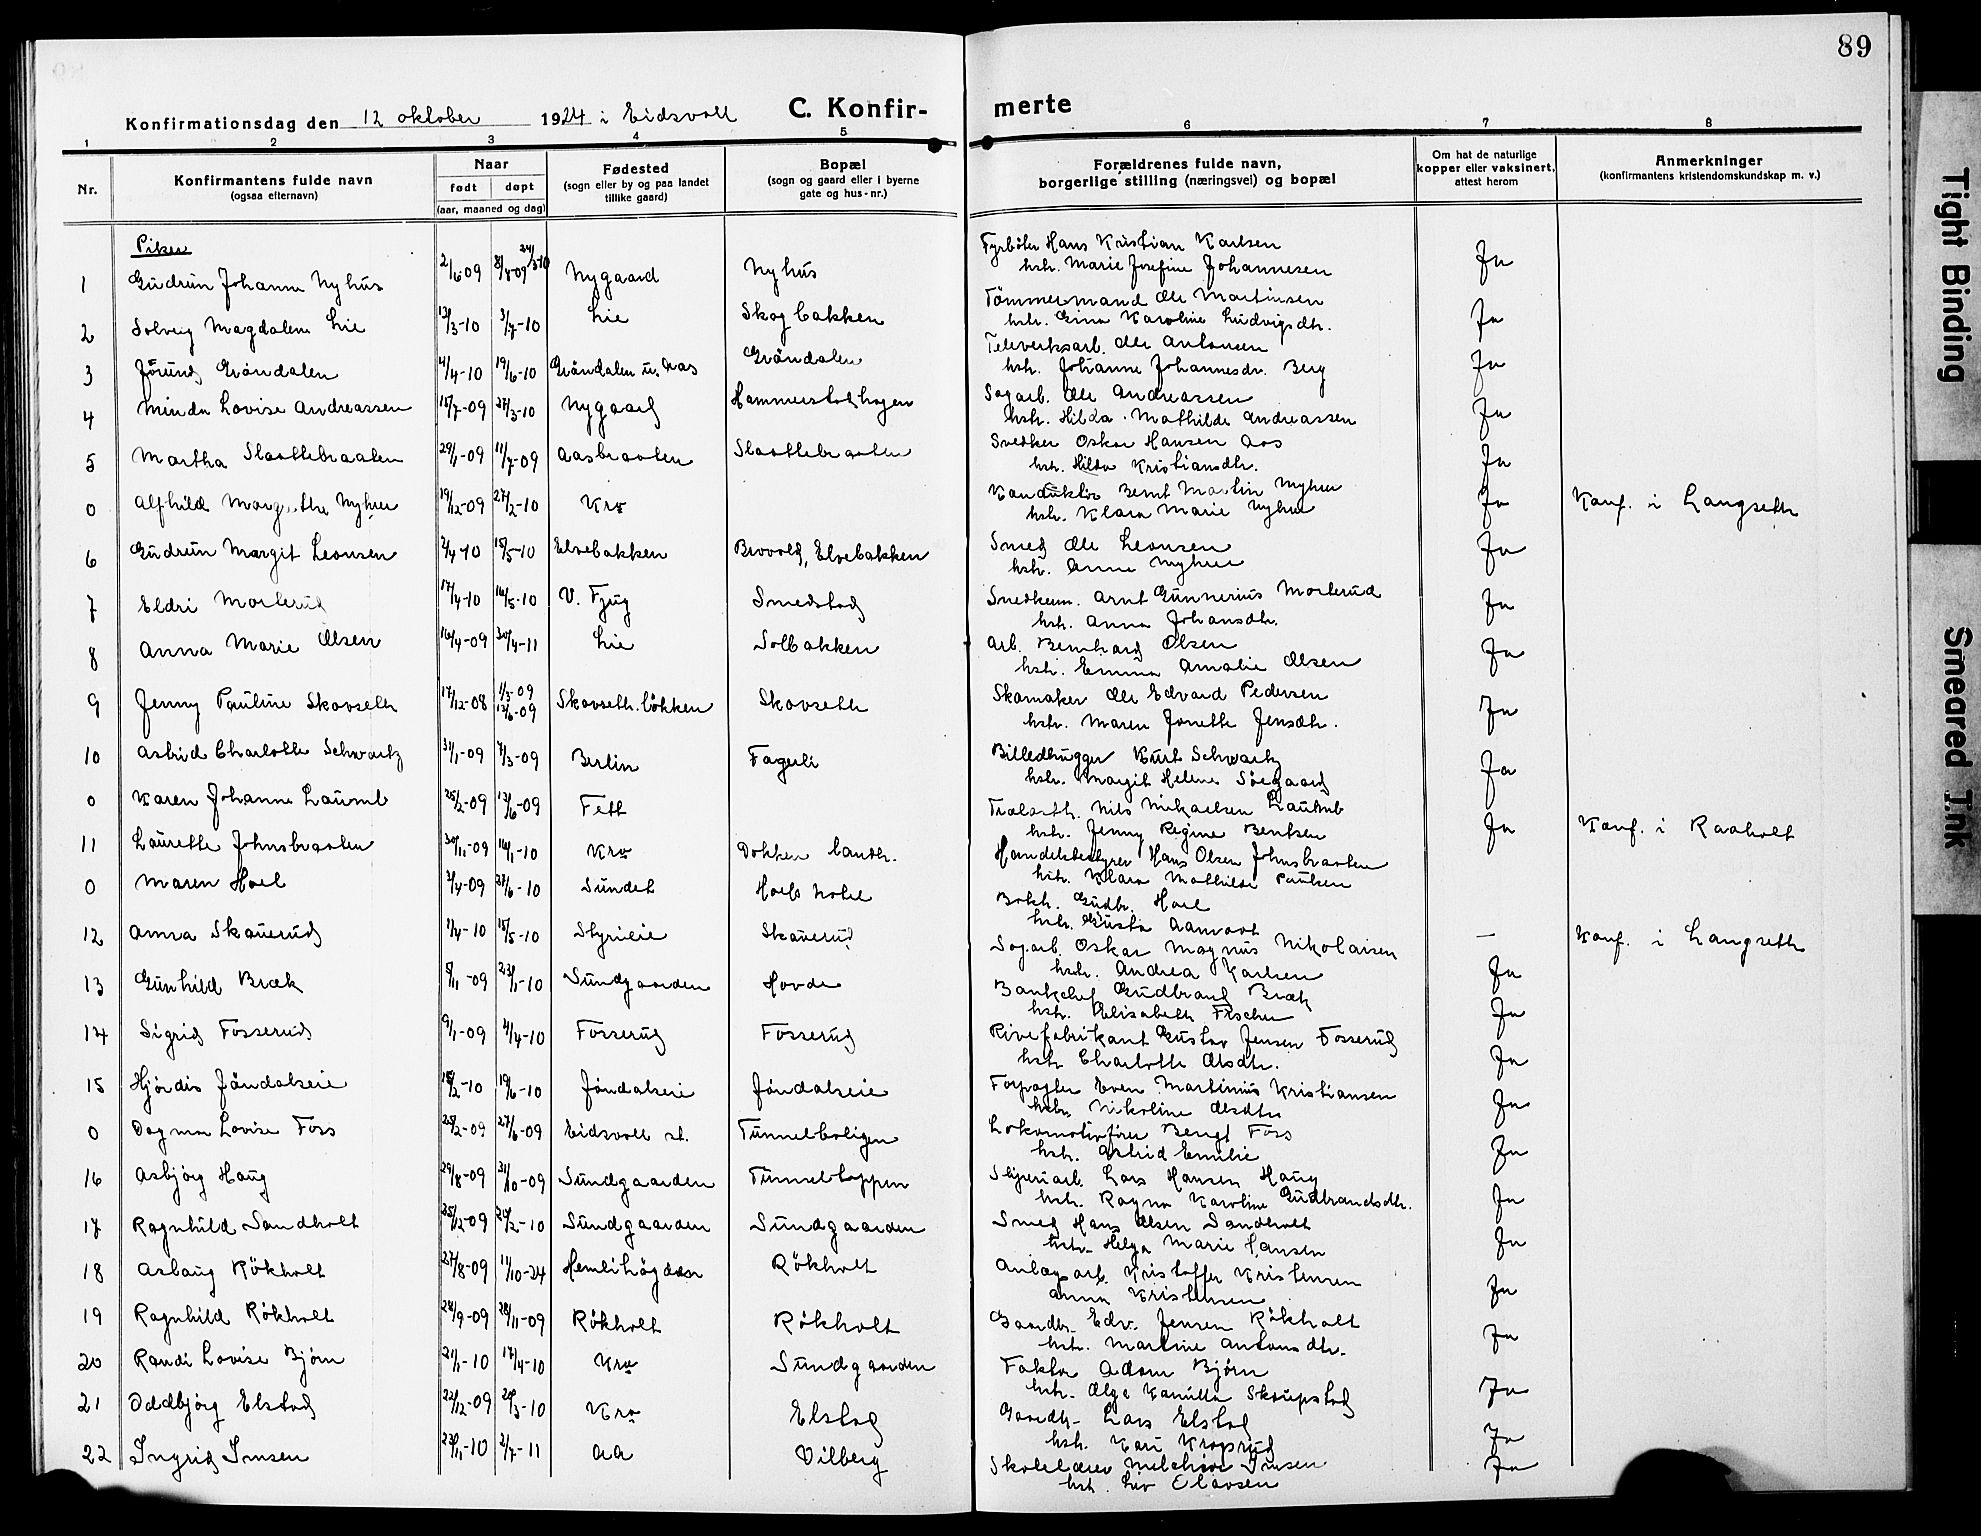 89
Konfirmationsdag den 12 oktober 1924 i Eidsvoll C. Konfir-merte
1 2 3 4 5 6 7 8
Nr. Konfirmantens fulde navn (ogsaa efternavn) Naar født døpt (aar, maaned og dag) Fødested (sogn eller by og paa landet tillike gaard) Bopæl (sogn og gaard eller i byerne gate og hus-nr.) Forældrenes fulde navn, borgerlige stilling (næringsvei) og bopæl Om hat de naturlige kopper eller vaksinert, attest herom Anmerkninger (konfirmantens kristendomskundskap m. v.)
Piker
1 Gudrun Johanne Nyhus 2/6-09 8/8-09 Nygaard Nyhus Fyrbøter Hans Kristian Karlsen Ja
hstr. Marie Josefine Johannesen
2 Solveig Magdalene Lie 13/3-10 3/7-10 Lie Skogbakken Tømmermand Ole Martinsen Ja
hstr. Gina Karoline Ludvigsdtr.
3 Jørund Grøndalen 4/4-10 19/6-10 Grøndalen u. Aas Grøndalen Televerksarb. Ole Antonsen Ja
hstr. Johanne Johannesdr. Berg
4 Minda Lovise Andreassen 15/7-09 27/3-10 Nygaard Hammerstadhagen Sagarb. Ole Andreassen Ja
hstr. Hilda Mathilde Andreassen
5 Martha Slaattebraaten 29/1-09 11/7-09 Aasbraaten Slaattebraaten Snedker Oskar Hansen Aas Ja
hstr. Hilda Kristiansdtr.
0 Alfhild Margrethe Nyhus 19/12-09 27/2-10 Kro Konduktør Bernt Martin Nyhus Ja Konf. i Langseth
hstr. Klara Marie Nyhus
6 Gudrun Margit Leonsen 2/4-10 15/5-10 Elvebakken Brovold, Elvebakken Smed Ole Leonsen Ja
hstr. Anne Nyhus
7 Eldri Morterud 17/4-10 16/5-10 V. Fjug Smedstad Snedkerm. Arnt Gunnerius Morterud Ja
hstr. Anna Johansdtr.
8 Anna Marie Olsen 16/4-09 30/4-11 Lie Solbakken Arb. Bernhard Olsen Ja
hstr. Emma Amalie Olsen
9 Jenny Pauline Skovseth 17/12-08 1/3-09 13/6-09 Skovseth.løkken Skovseth Skomaker Ole Edvard Pedersen Ja
hstr. Maren Jonette Jensdtr.
10 Astrid Charlotte Schwartz 31/1-09 7/3-09 Berlin Fagerli Billedhugger Kurt Schwartz Ja
hstr. Margit Helene Søegaard
0 Karen Johanne Laumb 25/2-09 13/6-09 Fett Nils Mikaelsen Laumb Ja Konf. i Raaholt
hstr. Jenny Regine Bentsen
11 Laurette Johnsbraaten 30/11-09 16/1-10 Kro Dokken landh. Handelsbestyrer Hans Olsen Johnsbraaten
hstr. Klara Mathilde Paulsen
0 Maren Hoel 2/4-09 Sundet Hoels hotel Bokh. Gudbr. Hoel — Konf. i Langseth
hstr. Gusta Aamodt
12 Anna Skauerud 1/4-10 15/5-10 Styrieie Skauerud Sagarb. Oskar Magnus Nikolaisen Ja
hstr. Andrea Karlsen
13 Gunhild Bræk 5/11-09 23/1-10 Sundgaarden Hovde Bankchef Gudbrand Bræk Ja
hstr. Elisabeth Fischer
14 Sigrid Fosserud 9/1-09 4/4-10 Fosserud Fosserud Rivefabrikant Gustav Jensen Fosserud Ja
hstr. Charlotte Olsdtr.
15 Hjørdis Jøndalseie 15/2-10 19/6-10 Jøndalseie Jøndalseie Forpagter Even Martinius Kristiansen Ja
hstr. Nikoline Olsdtr.
0 Dagmar Lovise Foss 25/2-09 27/6-09 Eidsvoll st. Tunnelboligen Lokomotivfører Bengt Foss Ja
hstr. Astrid Emilie
16 Asbjørg Haug 29/8-09 31/10-09 Sundgaarden Tunneltoppen Lars Hansen Haug Ja
hstr. Ragna Karoline Gudbrandsdtr.
17 Ragnhild Sandholt 25/12-09 20/2-10 Sundgaarden Sundgaarden Smed Hans Olsen Sandholt Ja
hstr. Helga Marie Hansen
18 Aslaug Røkholt 27/8-09 11/10-24 Hemlihøgda Røkholt Anlægsarb. Kristoffer Kristensen Ja
Anna Kristensen
19 Ragnhild Røkholt 28/9-09 28/11-09 Røkholt Røkholt Gaardbr. Edv. Jensen Røkholt Ja
hstr. Martine Antonsdtr.
20 Randi Lovise Bjørn 21/1-10 17/4-10 Kro Sundgaarden Faktor Adam Bjørn Ja
hstr. Olga Kamilla Skaugstad
21 Oddbjørg Elstad 22/12-09 20/3-10 Kro Elstad Gaardbr. Lars Elstad Ja
hstr. Kari Kragerud
22 Ingrid Imsen 23/11-10 2/7-11 Aa Vilberg Skolelærer Melchior Imsen Ja
hstr. Liv Olavsen
Tight Binding
Smeared Ink